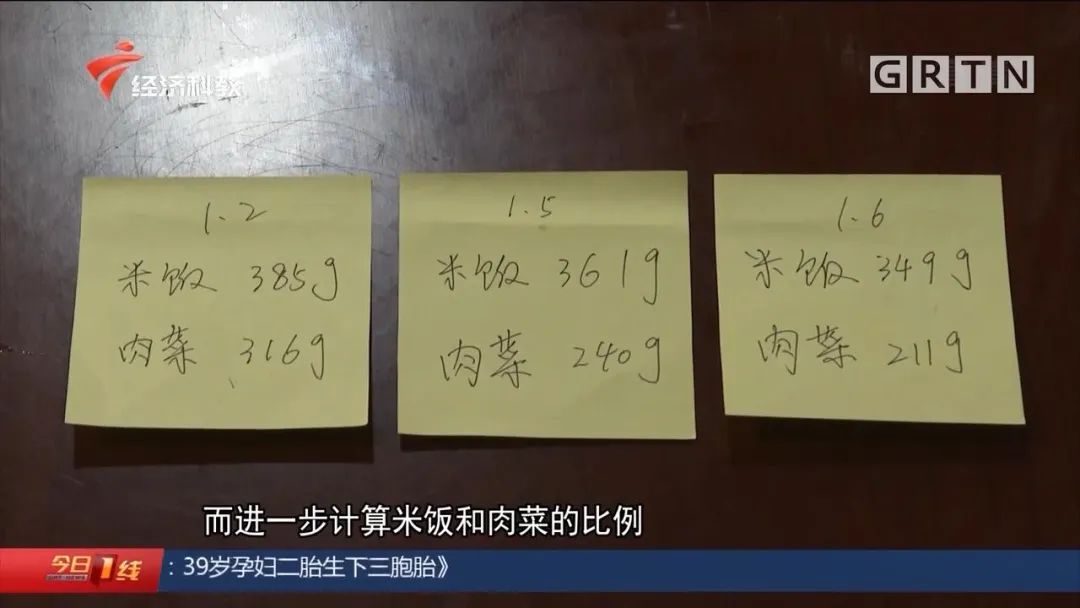 经济科教
GRTN
1.2
米饭 385g
肉菜 316g
1.5
米饭 361g
肉菜 240g
1.6
米饭 349g
肉菜 211g
而进一步计算米饭和肉菜的比例
今日1线
：39岁孕妇二胎生下三胞胎》